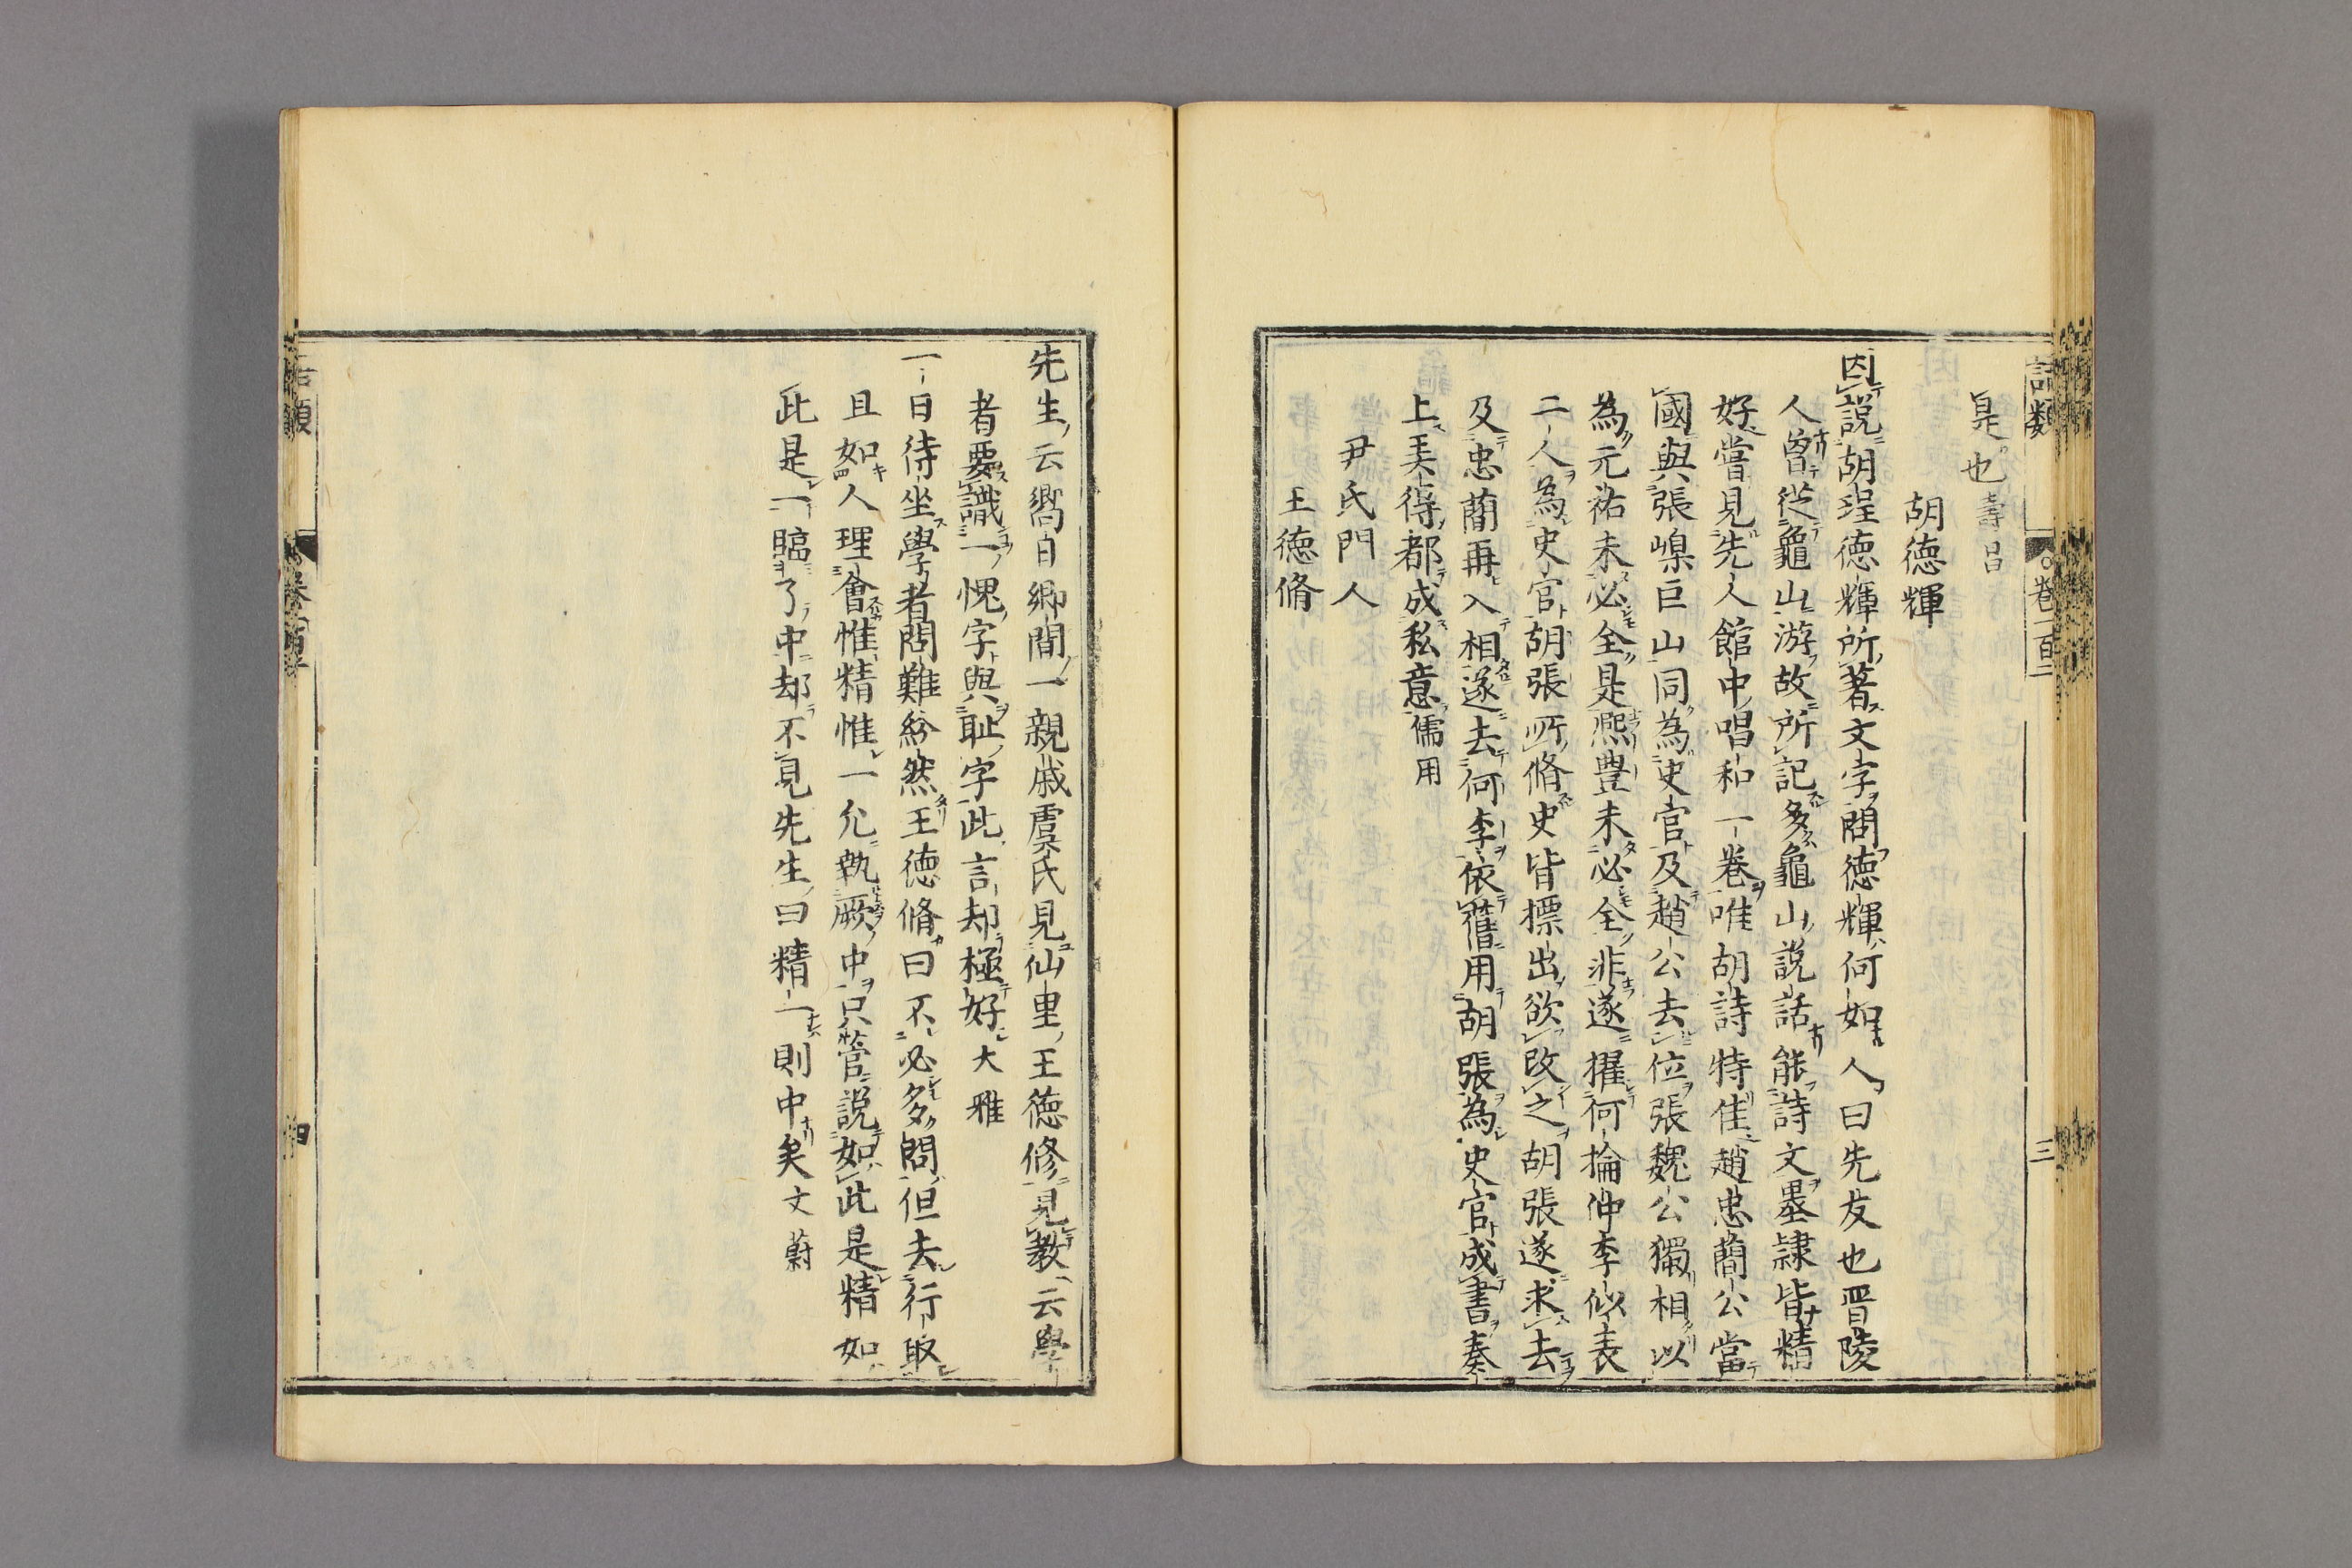 是也壽昌
胡徳輝
因説胡珵徳輝所著文字問徳輝何如人曰先友也晋陵
人曽從龜山游故所記多龜山説話能詩文墨隷皆精
好嘗見先人館中唱和一巻唯胡詩特佳趙忠蕳公當
國與張嵲巨山同為史官及趙公去位張魏公獨相以
為元祐未必全是熈豊未必全非遂擢何掄仲李似表
二人為史官胡張所脩史皆標出欲改之胡張遂求去
及忠蕳再入相遂去何李依舊用胡張為史官成書奏
上美得都成私意儒用
尹氏門人
王徳脩
先生云嚮日鄉間一親戚虞氏見仙里王徳修見教云學
者要識一愧字與耻字此言却極好大雅
一日侍坐學者問難紛然王徳脩曰不必多問但去行取
且如人理會惟精惟一允執厥中只管説如此是精如
此是一臨了中却不見先生曰精一則中矣文蔚
語類
卷一百二
三
四